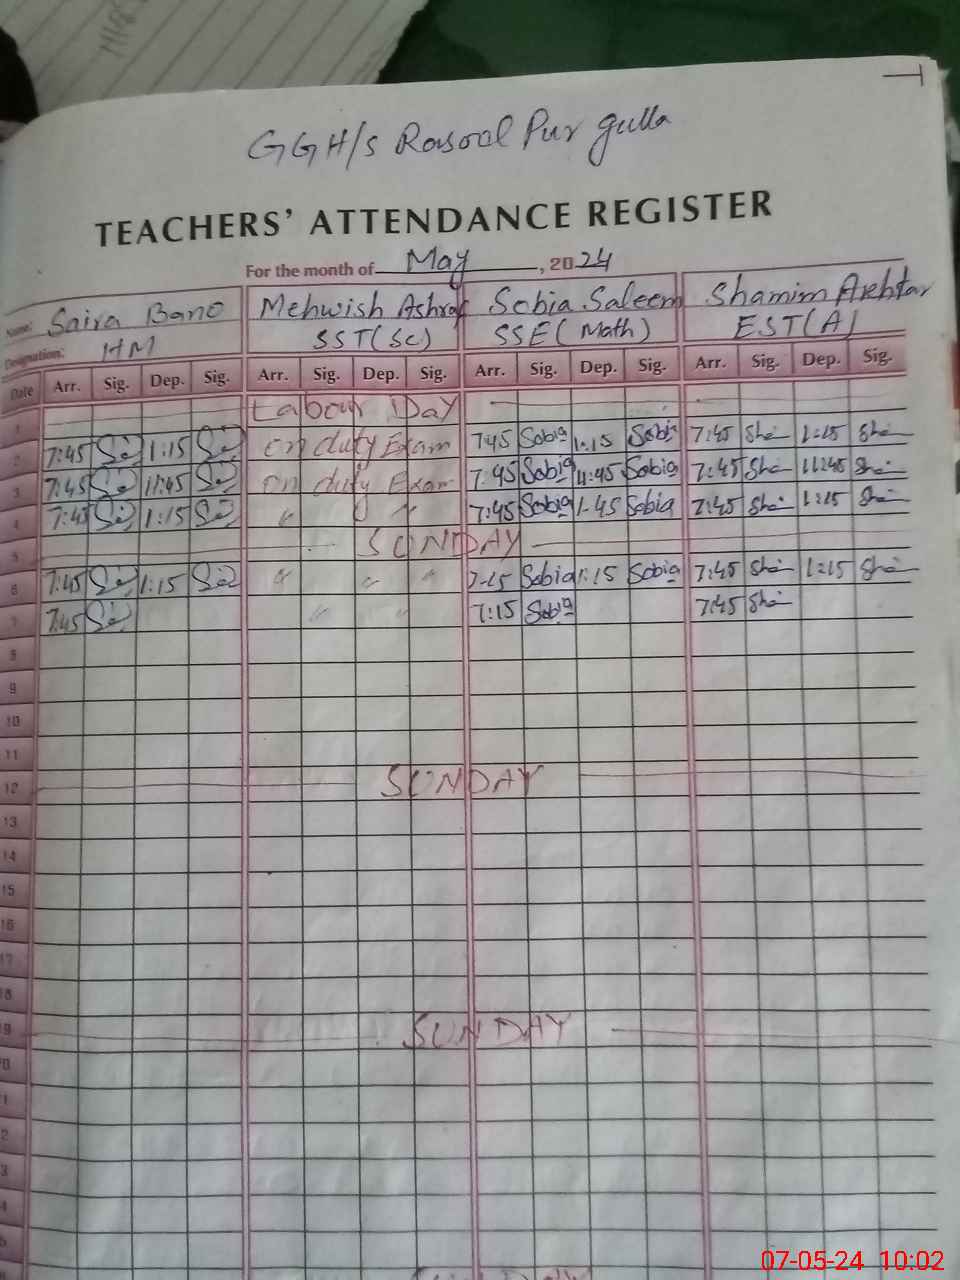 GGH/s Rasool Pur gulla
TEACHERS' ATTENDANCE REGISTER
For the month of May, 2024
Name: Saira Bano Mehwish Ashraf Sobia Saleem Shamim Akhtar
Designation: HM SST(Sc) SSE(Math) EST(A)
Date Arr. Sig. Dep. Sig. Arr. Sig. Dep. Sig. Arr. Sig. Dep. Sig. Arr. Sig. Dep. Sig.
1 Labour Day
2 7:45 1:15 on duty Exam 7:45 Sobia 1:15 Sobia 7:45 Sha 1:15 Sha
3 7:45 11:45 on duty Exam 7:45 Sobia 11:45 Sobia 7:45 Sha 11:45 Sha
4 7:45 1:15 " " 7:45 Sobia 1:45 Sobia 7:45 Sha 1:15 Sha
5 SUNDAY
6 7:45 1:15 " " " Sobia 1:15 Sobia 7:45 Sha 1:15 Sha
7 7:45 " " 7:15 Sobia 7:45 Sha
8
9
10
11
12 SUNDAY
13
14
15
16
17
18
19 SUNDAY
07-05-24 10:02